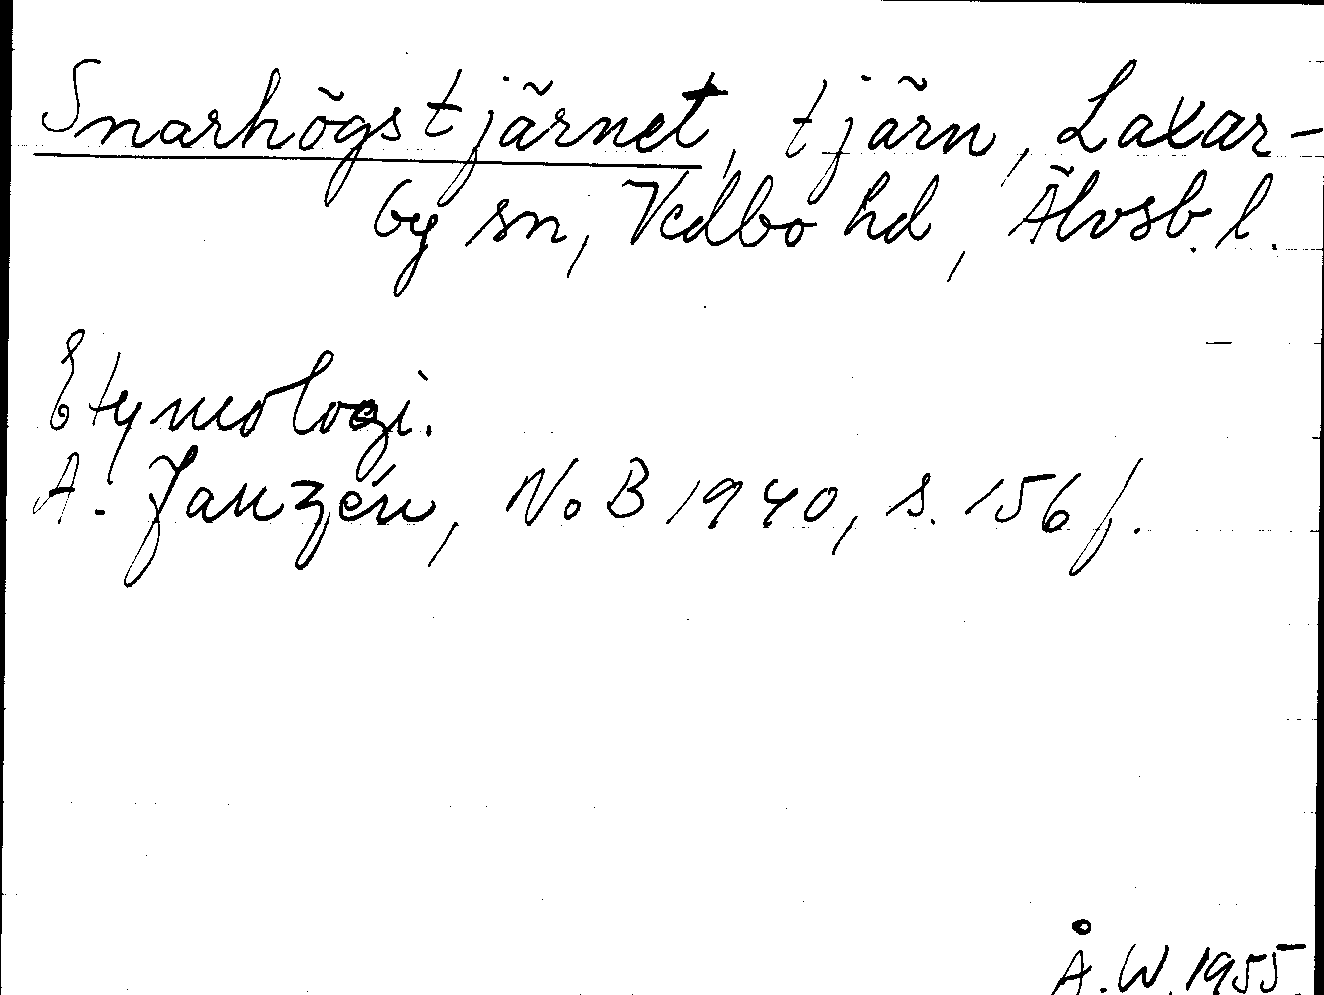 Snarhögstjärnet, tjärn, Laxar-
by sn, Vedbo hd, Älvsb. l.
Etymologi.
A. Janzén, NoB 1940, s. 156 f.
Å.W. 1955.